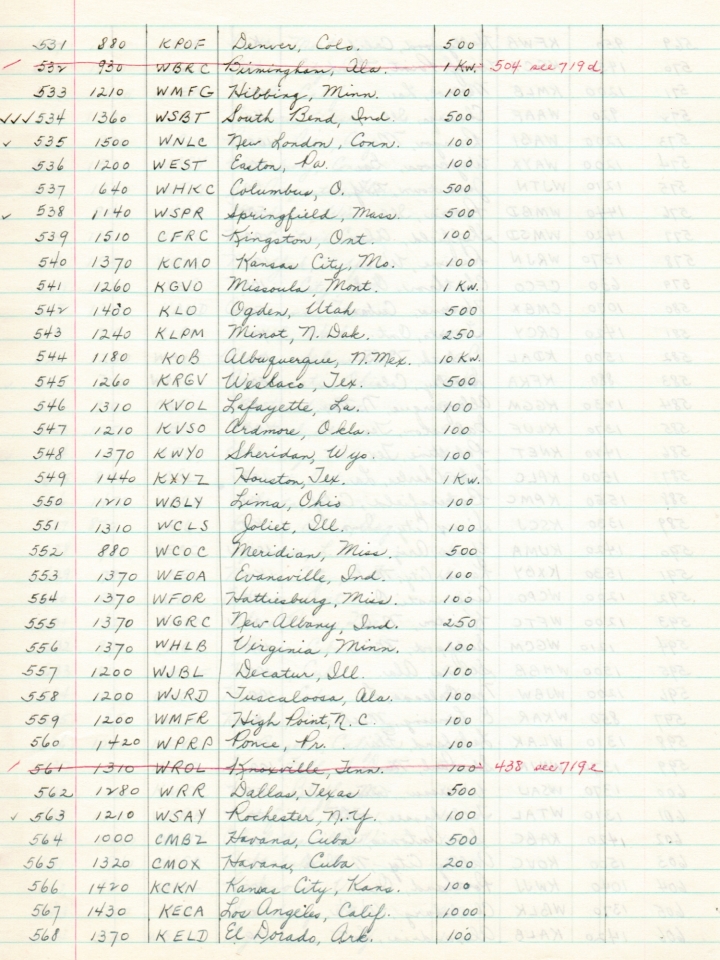 531 880 KPOF Denver, Colo. 500
532 930 WBRC Birmingham, Ala. 1 Kw. 504 see 719d
533 1210 WMFG Hibbing, Minn. 100
✓✓✓ 534 1360 WSBT South Bend, Ind. 500
✓ 535 1500 WNLC New London, Conn. 100
536 1200 WEST Easton, Pa. 100
537 640 WHKC Columbus, O. 500
✓ 538 1140 WSPR Springfield, Mass. 500
539 1510 CFRC Kingston, Ont. 100
540 1370 KCMO Kansas City, Mo. 100
541 1260 KGVO Missoula, Mont. 1 Kw.
542 1400 KLO Ogden, Utah 500
543 1240 KLPM Minot, N. Dak. 250
544 1180 KOB Albuquerque, N. Mex. 10 Kw.
545 1260 KRGV Weslaco, Tex. 500
546 1310 KVOL Lafayette, La. 100
547 1210 KVSO Ardmore, Okla. 100
548 1370 KWYO Sheridan, Wyo. 100
549 1440 KXYZ Houston, Tex. 1 Kw.
550 1210 WBLY Lima, Ohio 100
551 1310 WCLS Joliet, Ill. 100
552 880 WCOC Meridian, Miss. 500
553 1370 WEOA Evansville, Ind. 100
554 1370 WFOR Hattiesburg, Miss. 100
555 1370 WGRC New Albany, Ind. 250
556 1370 WHLB Virginia, Minn. 100
557 1200 WJBL Decatur, Ill. 100
558 1200 WJRD Tuscaloosa, Ala. 100
559 1200 WMFR High Point, N. C. 100
560 1420 WPRP Ponce, Pr. 100
561 1310 WROL Knoxville, Tenn. 100 438 see 719e
562 1280 WRR Dallas, Texas 500
✓ 563 1210 WSAY Rochester, N.Y. 100
564 1000 CMBZ Havana, Cuba 500
565 1320 CMOX Havana, Cuba 200
566 1420 KCKN Kansas City, Kans. 100
567 1430 KECA Los Angeles, Calif. 1000
568 1370 KELD El Dorado, Ark. 100